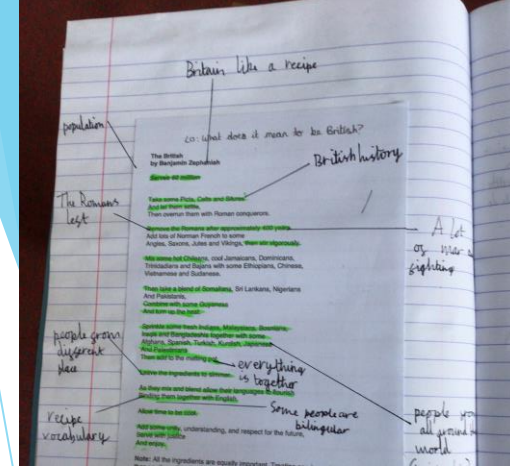 Britain like a recipe
population
LO: what does it mean to be British?
The British
by Benjamin Zephaniah
British history
Serves 60 million
Take some Picts, Celts and Silures
And let them settle,
Then overrun them with Roman conquerors.
The Romans
left
Remove the Romans after approximately 400 years
Add lots of Norman French to some
Angles, Saxons, Jutes and Vikings, then stir vigorously.
A lot
of war
fighting
Mix some hot Chileans, cool Jamaicans, Dominicans,
Trinidadians and Bajans with some Ethiopians, Chinese,
Vietnamese and Sudanese.
Then take a blend of Somalians, Sri Lankans, Nigerians
And Pakistanis,
Combine with some Guyanese
And turn up the heat.
Sprinkle some fresh Indians, Malaysians, Bosnians,
Iraqis and Bangladeshis together with some
Afghans, Spanish, Turkish, Kurdish, Japanese
And Palestinians
Then add to the melting pot.
people from
different
place
everything
is together
Leave the ingredients to simmer.
As they mix and blend allow their languages to flourish
Binding them together with English.
Some people are
bilingual
Allow time to be cool.
recipe
vocabulary
people
all around
world
Add some unity, understanding, and respect for the future,
Serve with justice
And enjoy.
Note: All the ingredients are equally important.